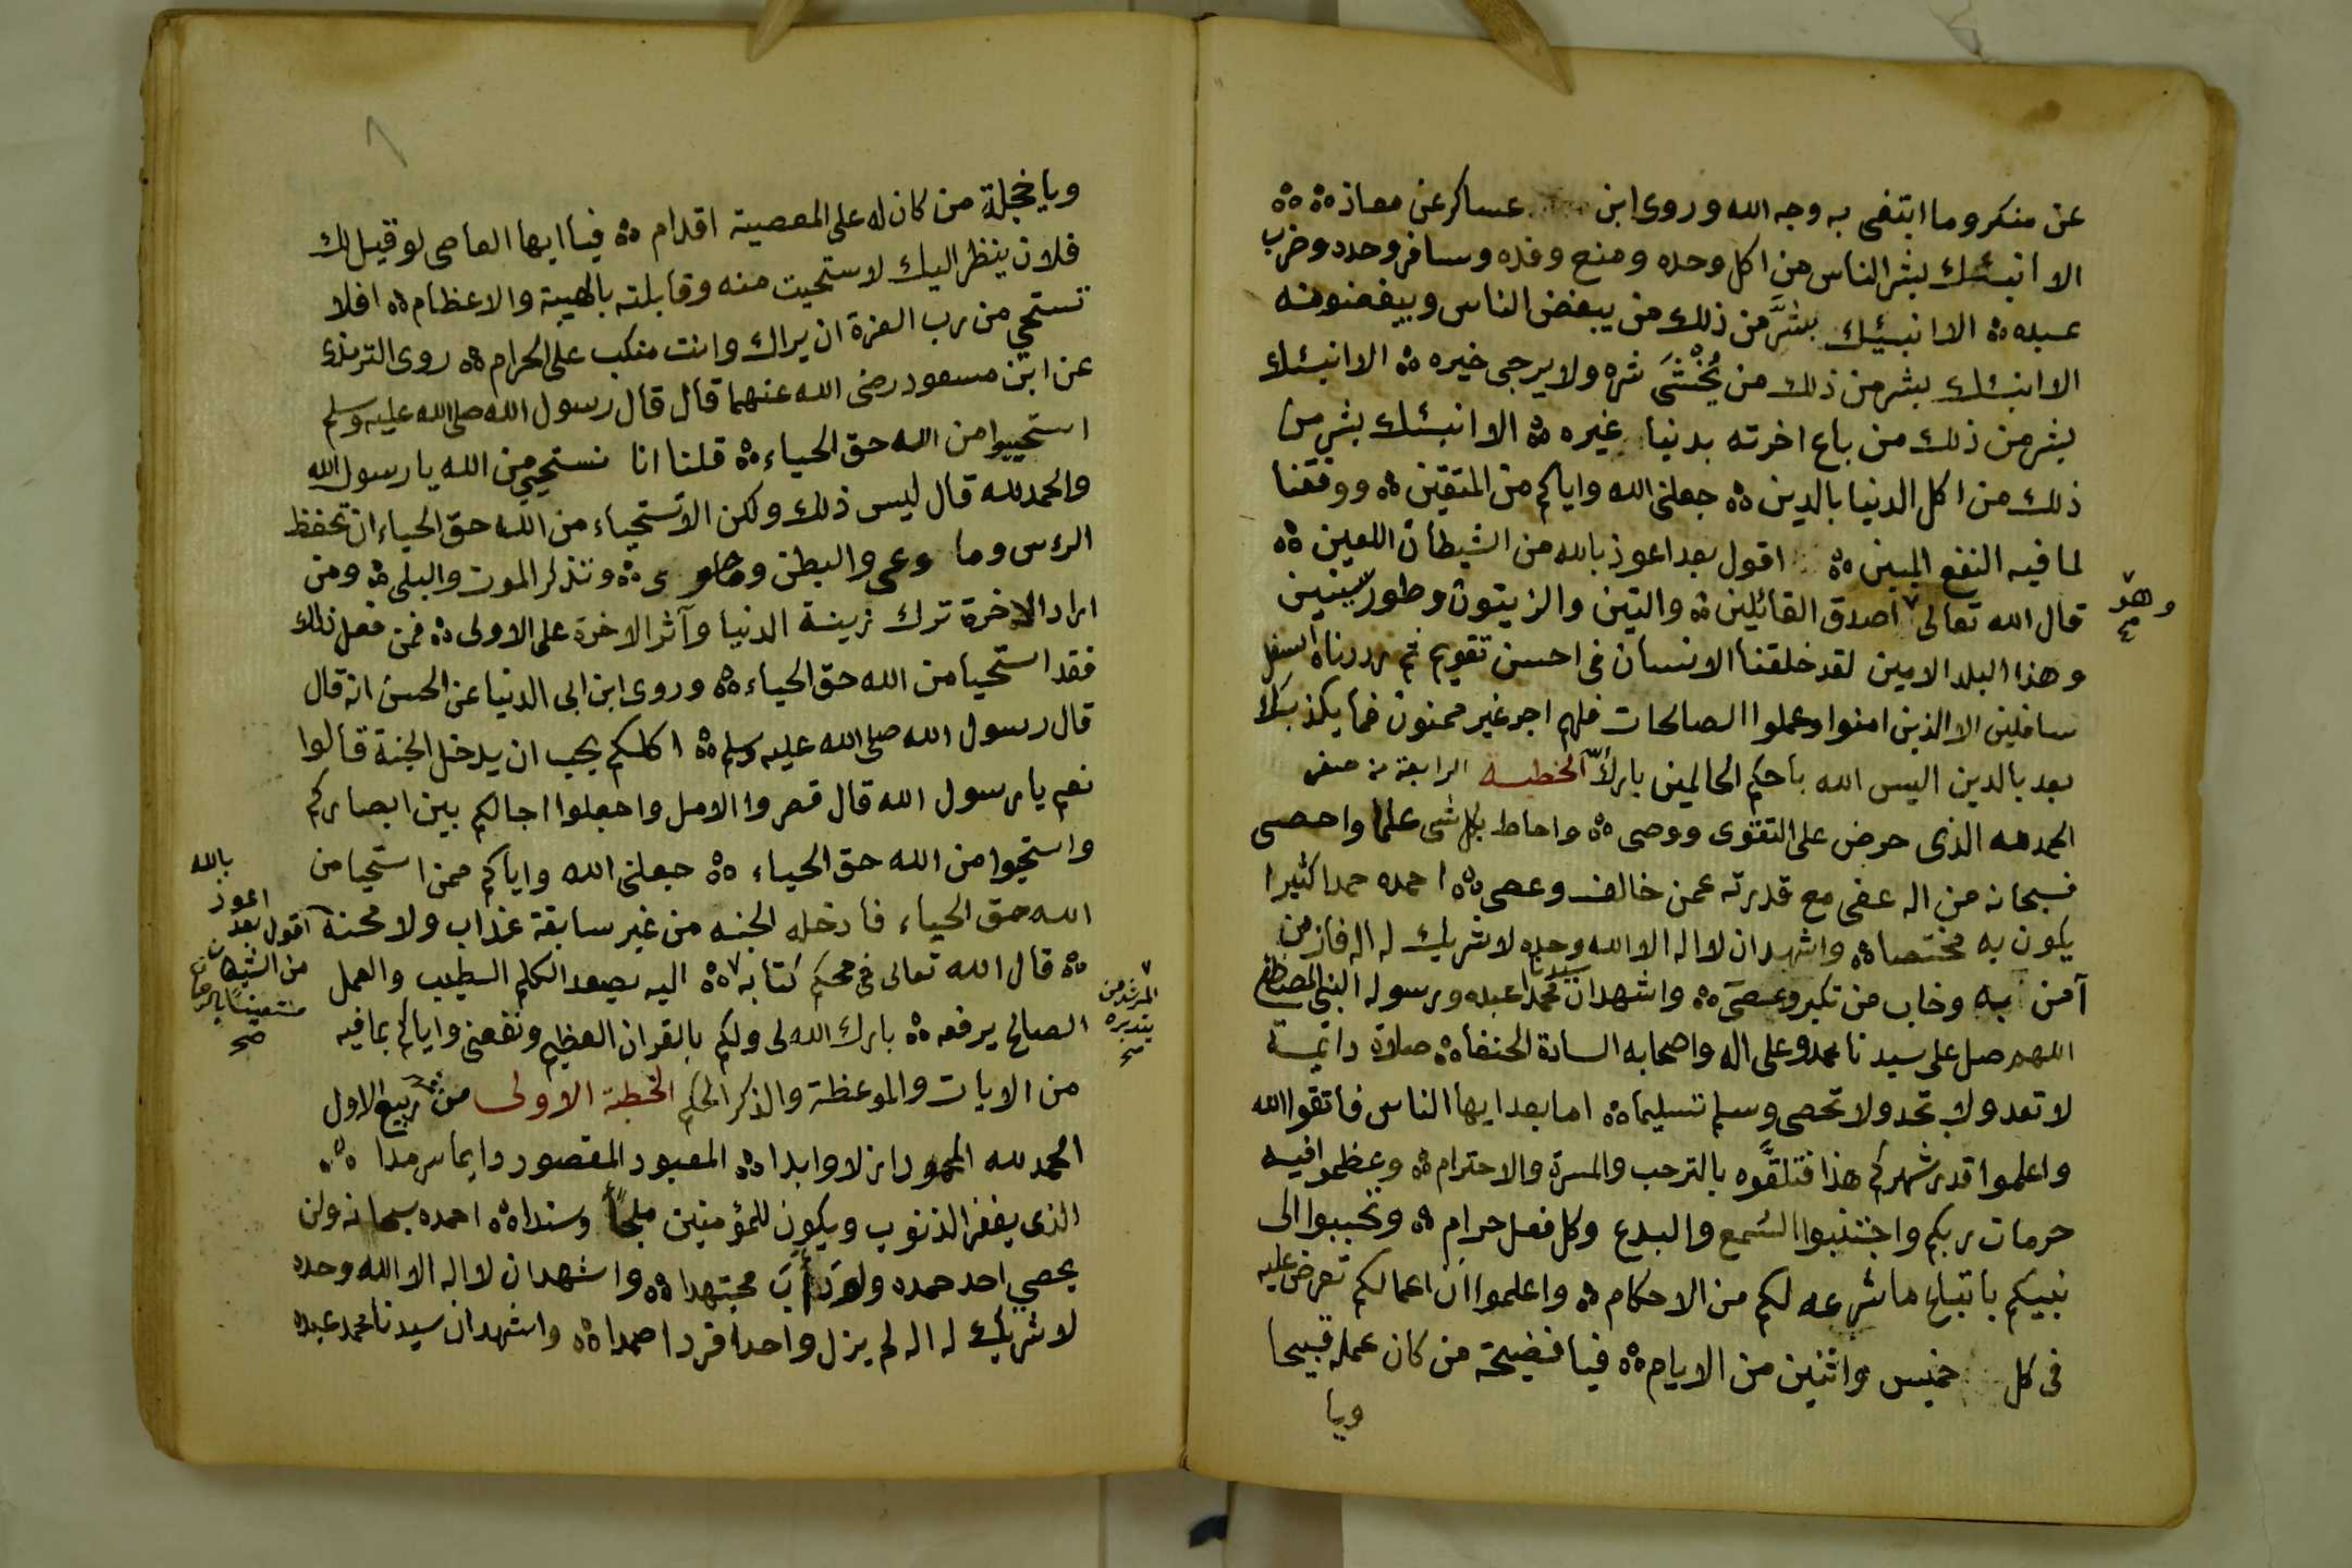 عن منكر وما ابتغى به وجه الله وروى ابن عساكر عن معاذ ه ه
الا انبئك بشر الناس من اكل وحده ومنع وفده وسافر وحده وضرب
عبده ه الا انبئك بشرَّ من ذلك من يبغض الناس ويبغضونه
الا انبئك بشر من ذلك من يُخْشَى شره ولا يرجى خيره ه الا انبئك
بشر من ذلك من باع اخرته بدنيا غيره ه الا انبئك بشر من
ذلك من اكل الدنيا بالدين ه جعلنى الله واياكم من المتقين ه ووفقنا
لما فيه النفع المبين ه اقول بعد اعوذ بالله من الشيطان اللعين ه
قال الله تعالى اصدق القائلين ه والتين والزيتون وطور سينين
وهو
وهذا البلد الامين لقد خلقنا الانسان فى احسن تقويم ثم رددناه اسفل
سافلين الا الذين امنوا وعملوا الصالحات فلهم اجر غير ممنون فما يكذبك
بعد بالدين اليس الله باحكم الحاكمين بارك الخطبه الرابعة من صفر
الحمد لله الذى حرض على التقوى ووصى ه واحاط بكل شى علما واحصى
فسبحانه من اله عفى مع قدرته عمن خالف وعصى ه احمده حمدا كثيرا
يكون به مختصا ه واشهد ان لا اله الا الله وحده لا شريك له اله فاز من
آمن به وخاب من تكبر وعصى ه واشهد ان سيدنا محمدا عبده ورسوله النبى المصطفى
اللهم صل على سيدنا محمد وعلى اله واصحابه السادة الحنفا ه صلاة دائمة
لا تعد ولا تحد ولا تحصى وسلم تسليما ه اما بعد ايها الناس فاتقوا الله
واعلموا قدر شهركم هذا فتلقَّوه بالترحب والمسرة والاحترام ه وعظموا فيه
حرمات ربكم واجتنبوا السُمع والبدع وكل فعل حرام ه وتحببوا الى
نبيكم باتباع ما شرعه لكم من الاحكام ه واعلموا ان اعمالكم تعرض عليه
فى كل خميس واثنين من الايام ه فيا فضيحة من كان عمله قبيحا
ويا
ويا خجلة من كان له على المعصية اقدام ه فيا ايها العاصى لو قيل لك
فلان ينظر اليك لاستحيت منه وقابلته بالهيبة والاعظام ه افلا
تستحي من رب العزة ان يراك وانت منكب على الحرام ه روى الترمذى
عن ابن مسعود رضى الله عنهما قال قال رسول الله صلى الله عليه وسلم
استحييوا من الله حق الحياء ه قلنا انا نستحيي من الله يا رسول الله
والحمد لله قال ليس ذلك ولكن الاستحياء من الله حق الحياء ان تحفظ
الرءس وما وعى والبطن وما حوى ه وتتذكر الموت والبلى ه ومن
اراد الاخرة ترك زينة الدنيا وآثر الاخرة على الاولى ه فمن فعل ذلك
فقد استحيا من الله حق الحياء ه وروى ابن ابى الدنيا عن الحسن انه قال
قال رسول الله صلى الله عليه وسلم ه اكلكم يحب ان يدخل الجنة قالوا
نعم يا رسول الله قال قصروا الامل واجعلوا اجالكم بين ابصاركم
واستحيوا من الله حق الحياء ه جعلنى الله واياكم ممن استحيا من
الله حق الحياء فادخله الجنه من غير سابقة عذاب ولا محنة اقول بعد
اعوذ بالله من الشيطان
ه قال الله تعالى فى محكم كتابه ه اليه يصعد الكلم الطيب والعمل
المرشد من
الصالح يرفعه ه بارك الله لى ولكم بالقران العظيم ونفعنى واياكم بما فيه
من الايات والموعظة والذكر الحكيم الخطبة الاولى من شهر ربيع الاول
الحمد لله المحمود ازلا وابدا ه المعبود المقصود دايما سرمدا ه
الذى يغفر الذنوب ويكون للمؤمنين ملجأً وسندا ه احمده سبحانه ولن
يحصي احد حمده ولو دأبَ مجتهدا ه واشهد ان لا اله الا الله وحده
لا شريك له اله لم يزل واحدا فردا صمدا ه واشهد ان سيدنا محمد عبده